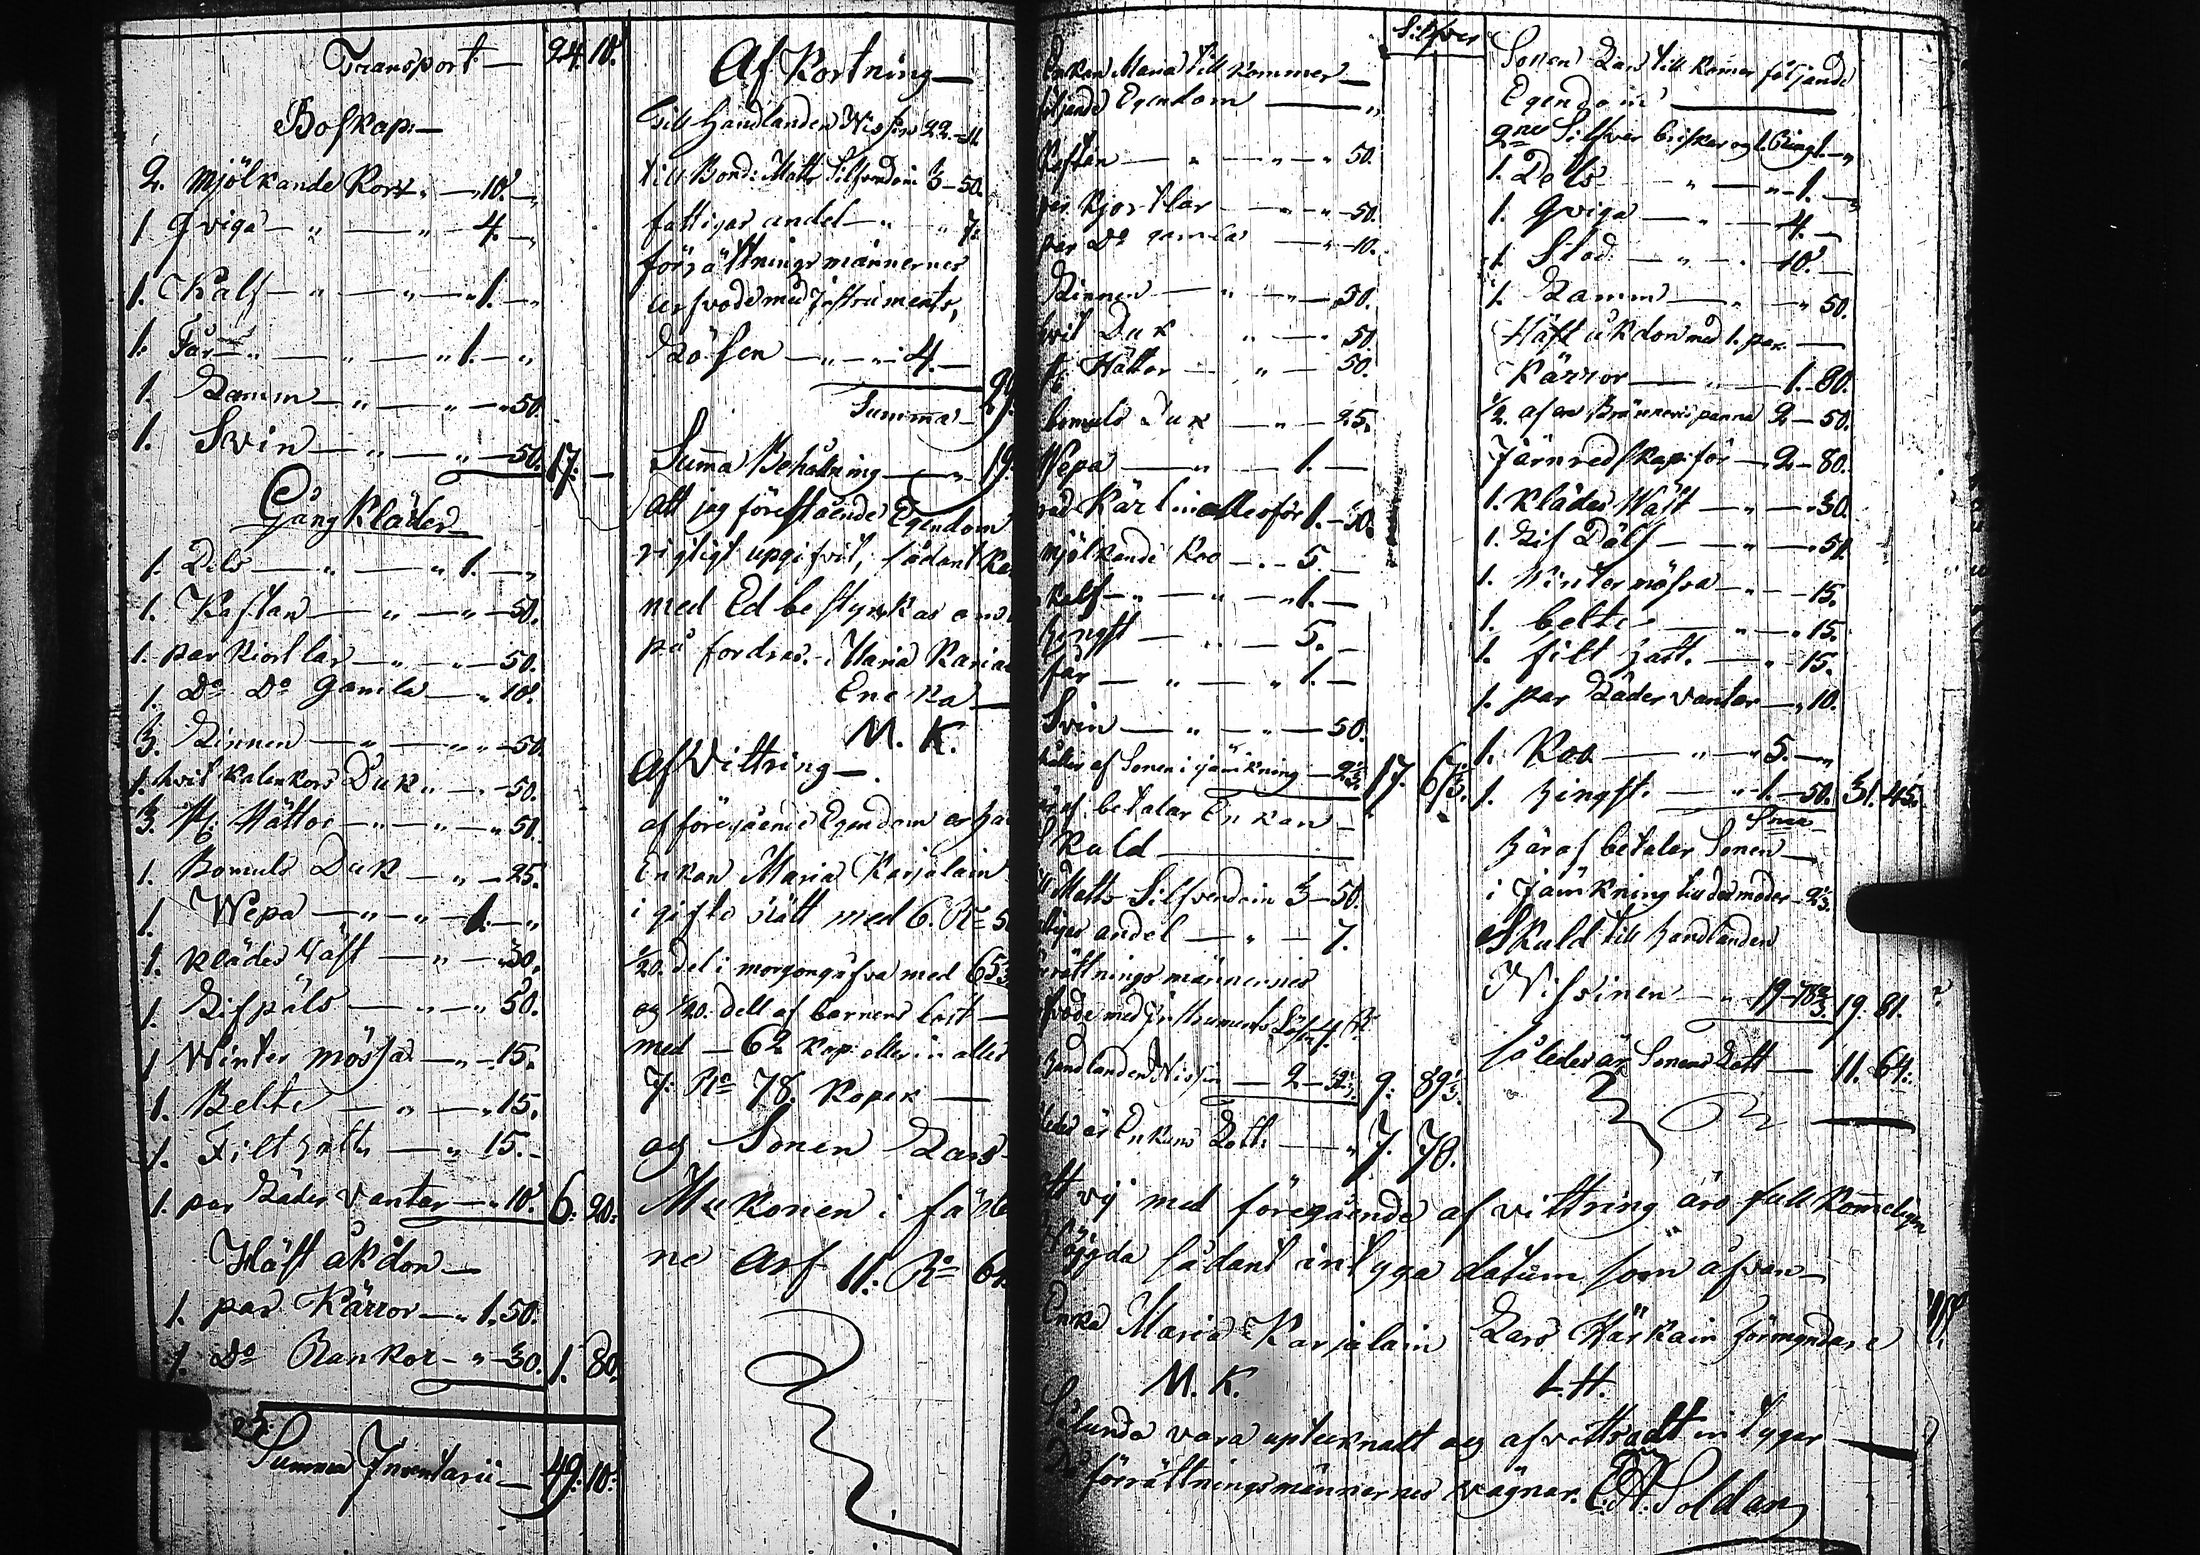 Transport — 24. 10.
Boskap. —
2. mjölkande Kor " — 10. "
1. Qviga — " — " — 4. — "
1. Kalf — " — " — 1. — "
1. Får — " — " 1. — "
1. Lamm — " — " — 50.
1. Svin — " — " — 50. 17. —
Gång Kläder
1. Dels — " — " 1. — "
1. Kaftan — " — " — 50.
1. par Kiortlar — " — " — 50.
1. Do Do Gamla — " 10.
3. Linnen — " — " — 50.
1. hvit kalenkors Duk " — " — 50.
3. st. Hättor — " — " — " 50.
1. Bomuls Duk — " — 25.
1. Wepa — " — " — 1. — "
1. klädes Wäst — " — 30.
1. Lifpäls — " — " 50.
1 Winter mössa — " — 15.
1. Belte — " — " 15.
1. Filt hatt — " 15. —
1. par Läder vantar — " 10. 6. 20.
Häst åkdon —
1. par Kärror — " 1. 50.
1. Do Rankor — " — 30. 1. 80.
Summa Inventarii — 49. 10.
Af Kortning —
till Handlanden Nissinen 22. — 11.
till Bond: Matts Silfverdoin 3 — 50.
fattigas andel — " " 7.
förrättnings männernes
arfvode med Instruments,
Lösen — " — " 4. —
Summa — 29.
Summa Behålning — " — 19.
Att jag föreståendes Egendom
rigtigt upgifvit, sådant
med Ed bestyrkas
på fordras. — Maria
Encka —
M. K.
Af Vittring —.
af föregående Egendom
Enkan Maria Karjalain
i gifto rätt med 6. Ro
1/20. del i morgongåfva med 65
og 1/20. dell af barnens lott —
med — 62 kop: eller in alles
7. Ro 78. Kopek —
og Sonen Lars
i fä
ne Arf 11. Ro 64
Silfver
Enkan Maria till kommer —
följande Egendom — "
Koftan — " — " — " 50.
par Kjortlar — " — " — 50.
par Do gamla — " — 10.
Linnen — " — " — 50.
hvit Duk " — " — 50.
st. Hättor — " — 50.
bomuls Duk — " — 25.
Wepa — " — 1. —
alles för 1. — 50.
mjölkande Ko — " — 5. —
Kalf — " — " — " 1. —
hingst — " — 5. —
får — " — " 1. —
Svin — " — " — 50.
af Sonen i jämkning — 2 1/3. 17. 67 1/3.
betalar Enkan —
Skuld —
Matts Silfverdoin 3 — 50.
fattigas andel — " — 7.
förrättnings männernes
arfvode med Instruments Lösen 4. R.
Handlanden Nissin — 2 — 32 1/3. 9. 89 1/3.
ledes är Enkans Lott — " 7. 78.
Sonen Lars till komer följande
Egendom —
2ne Silfver brisker og 1. Ring 1. — "
1. Dels " — " 1. —
1. Qviga — " — 4. —
1. Stod — " — " 10. —
1. Lamm — " — " 50.
Häst åkdon med 1. par —
Kärror — " — 1. 80.
1/2. af en Bränneris panna 2 — 50.
Järnredskap för — 2 — 80.
1. klädes Wäst — " — 30.
1. Lif Päls — " — 50.
1. Winter mössa — " — 15.
1. belte — " — " 15.
1. filt hatt. — " 15.
1. par Läder vantar — " 10.
1. Ko — " — 5. — "
1. hingst. — " — 1. — 50. 31. 45.
Häraf betaler Sonen —
i Jämkning till des moder — 2 1/3.
Skuld till Handlanden
Nissinen — " 19 — 78 2/3. 19. 81.
således är Sonens Lott — 11. 64.
att vij med föregående afvittring äro fullkomeligen
Nöjda sådant intyga datum som åfvan —
Enka Maria Karjalain Lars Härkäin Förmyndare
M. K. L. H.
Sålunda vara upteknatt og afvittradt intyger —
På förrättningsmännernes vägnar. E. A. Soldan